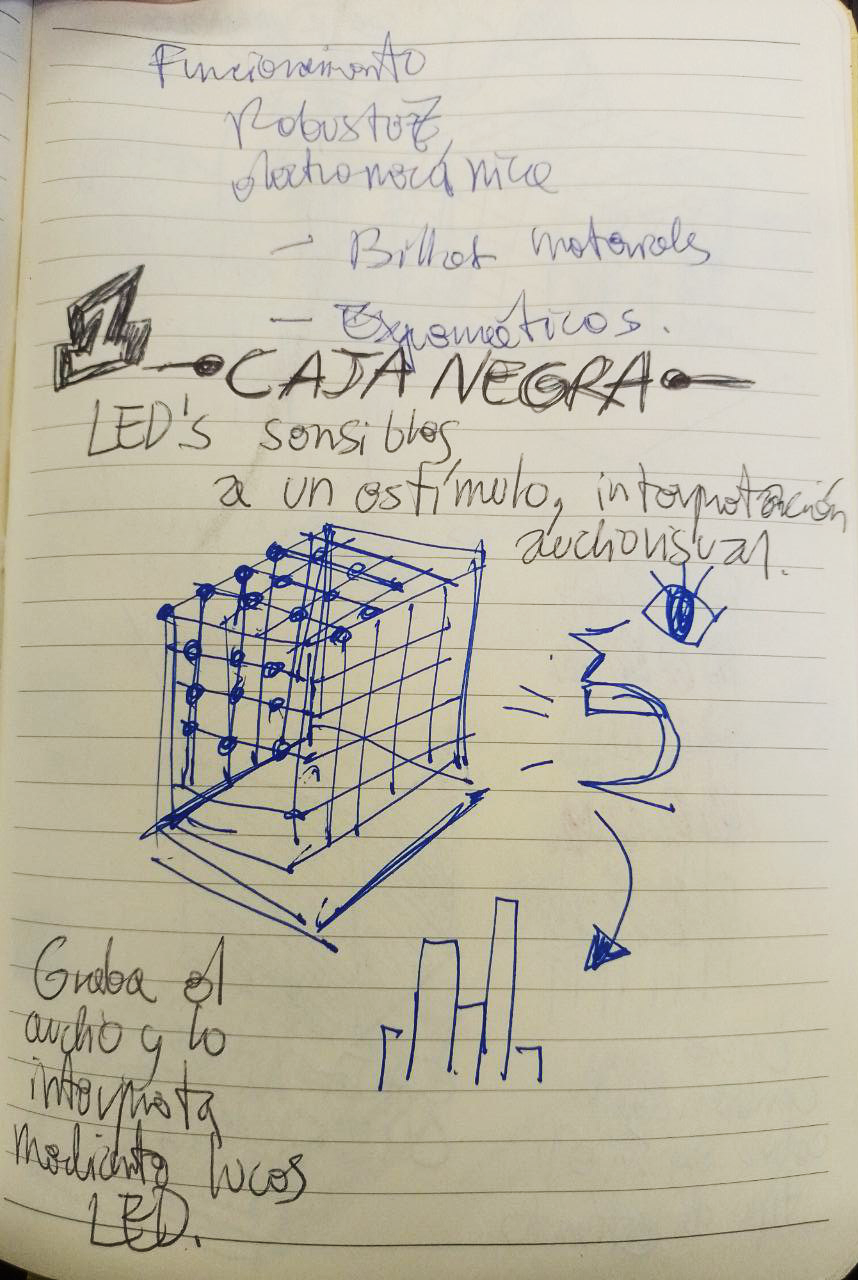 Funcionamiento
Robustez
electromecánica
- Billes materiales
- Expomáticos.
1
CAJA NEGRA
LED's sensibles
a un estímulo, interpretación
audiovisual.
Graba el
audio y lo
interpreta
mediante luces
LED.